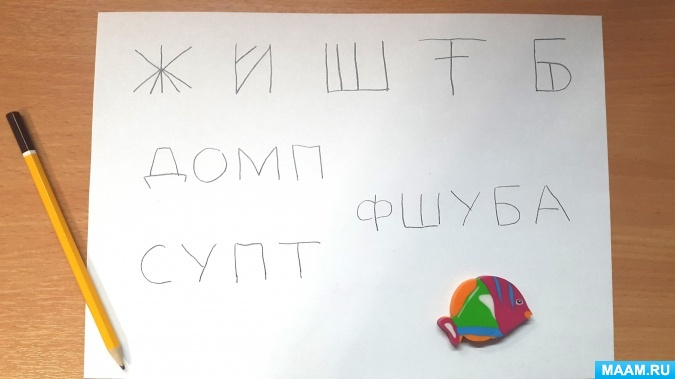 Ж И Ш Т Б
ДОМП
ФШУБА
СУПТ
MAAM.RU